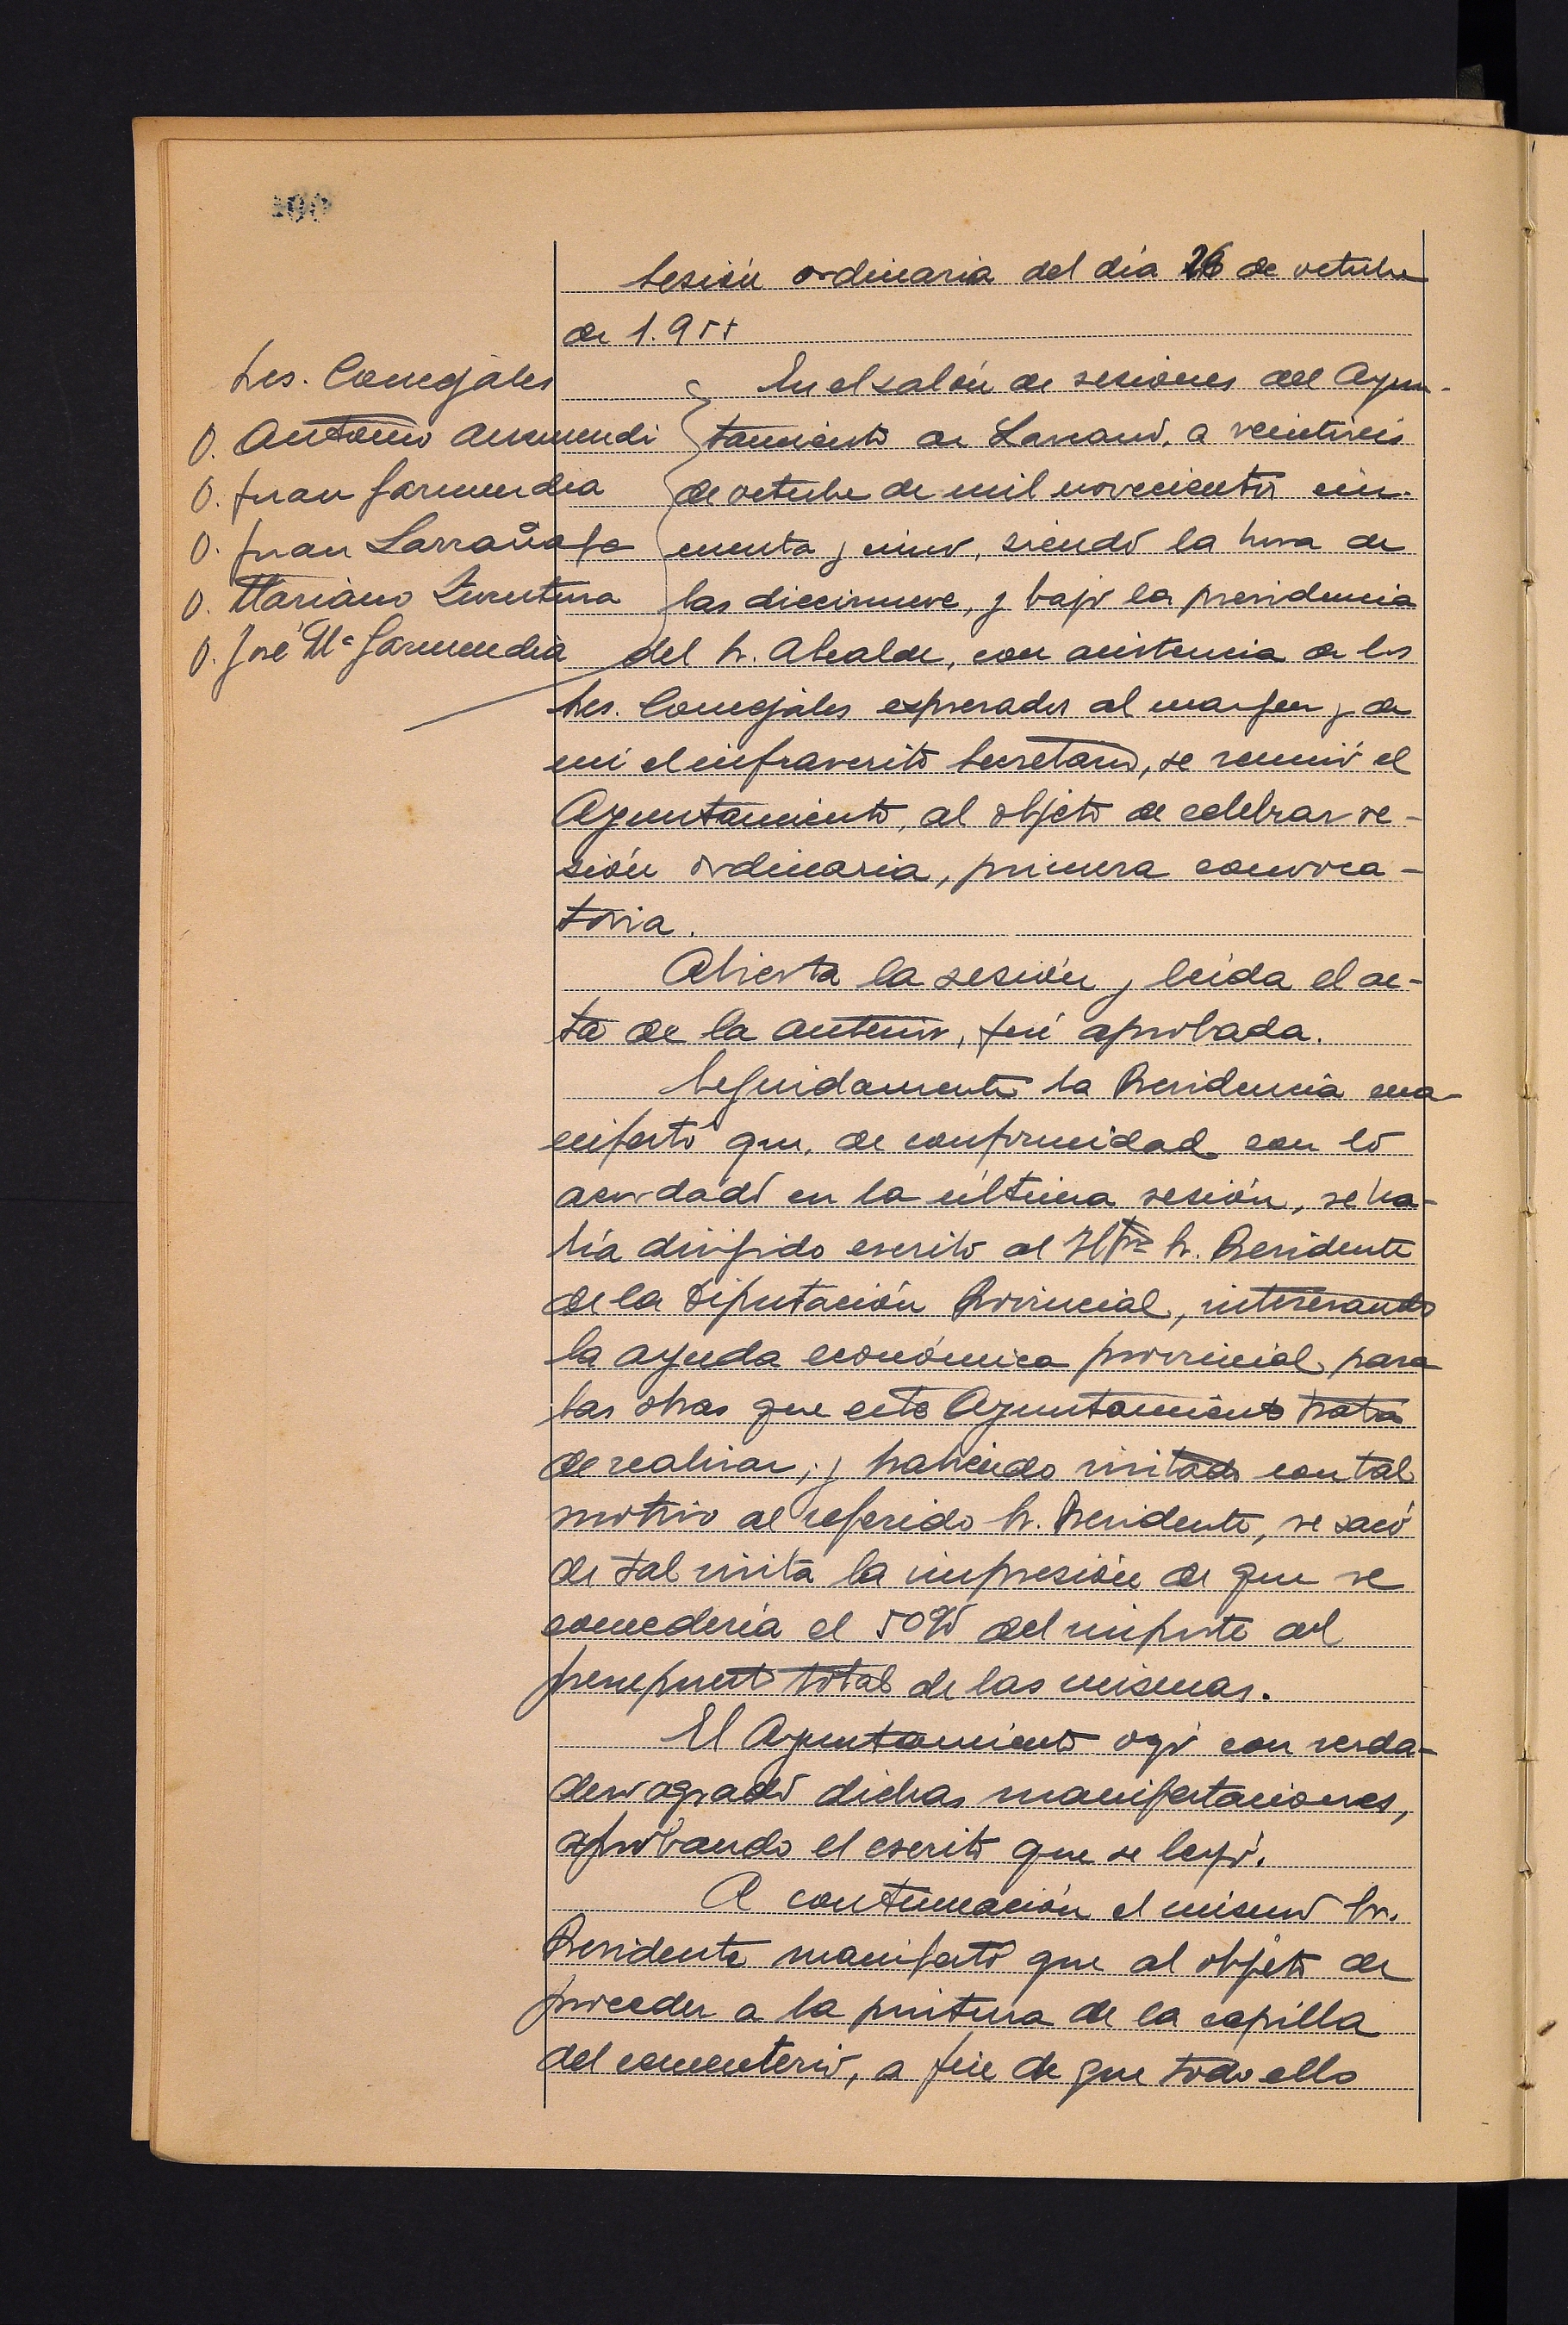 Sesión ordinaria del día 26 de octubre
de 1.955
Sres. Concejales
D. Antonio Aresmendi
D. Juan Garmendia
D. Juan Larrañaga
D. Mariano Zurutuza
D. José Mª Garmendia
En el salón de sesiones del Ayun-
tamiento de Larraul, a veintiseis
de octubre de mil novecientos cin-
cuenta y cinco, siendo la hora de
las diecinueve, y bajo la presidencia
del Sr. Alcalde, con asistencia de los
Sres. Concejales expresados al margen y de
mí el infrascrito Secretario, se reunió el
Ayuntamiento, al objeto de celebrar se-
sión ordinaria, primera convoca-
toria.
Abierta la sesión y leída el ac-
ta de la anterior, fué aprobada.
Seguidamente la Presidencia ma-
nifestó que, de conformidad con lo
acordado en la última sesión, se ha-
bía dirigido escrito al Sr. Presidente
de la Diputación Provincial, interesando
la ayuda económica provincial, para
las obras que este Ayuntamiento trata
de realizar, y habiendo visitado con tal
motivo al referido Sr. Presidente, se sacó
de tal visita la impresión de que se
concedería el 50% del importe del
presupuesto total de las mismas.
El Ayuntamiento oyó con verda-
dero agrado dichas manifestaciones,
aprobando el escrito que se leyó.
A continuación el mismo Sr.
Presidente manifestó que al objeto de
proceder a la pintura de la capilla
del cementerio, a fin de que todo ello